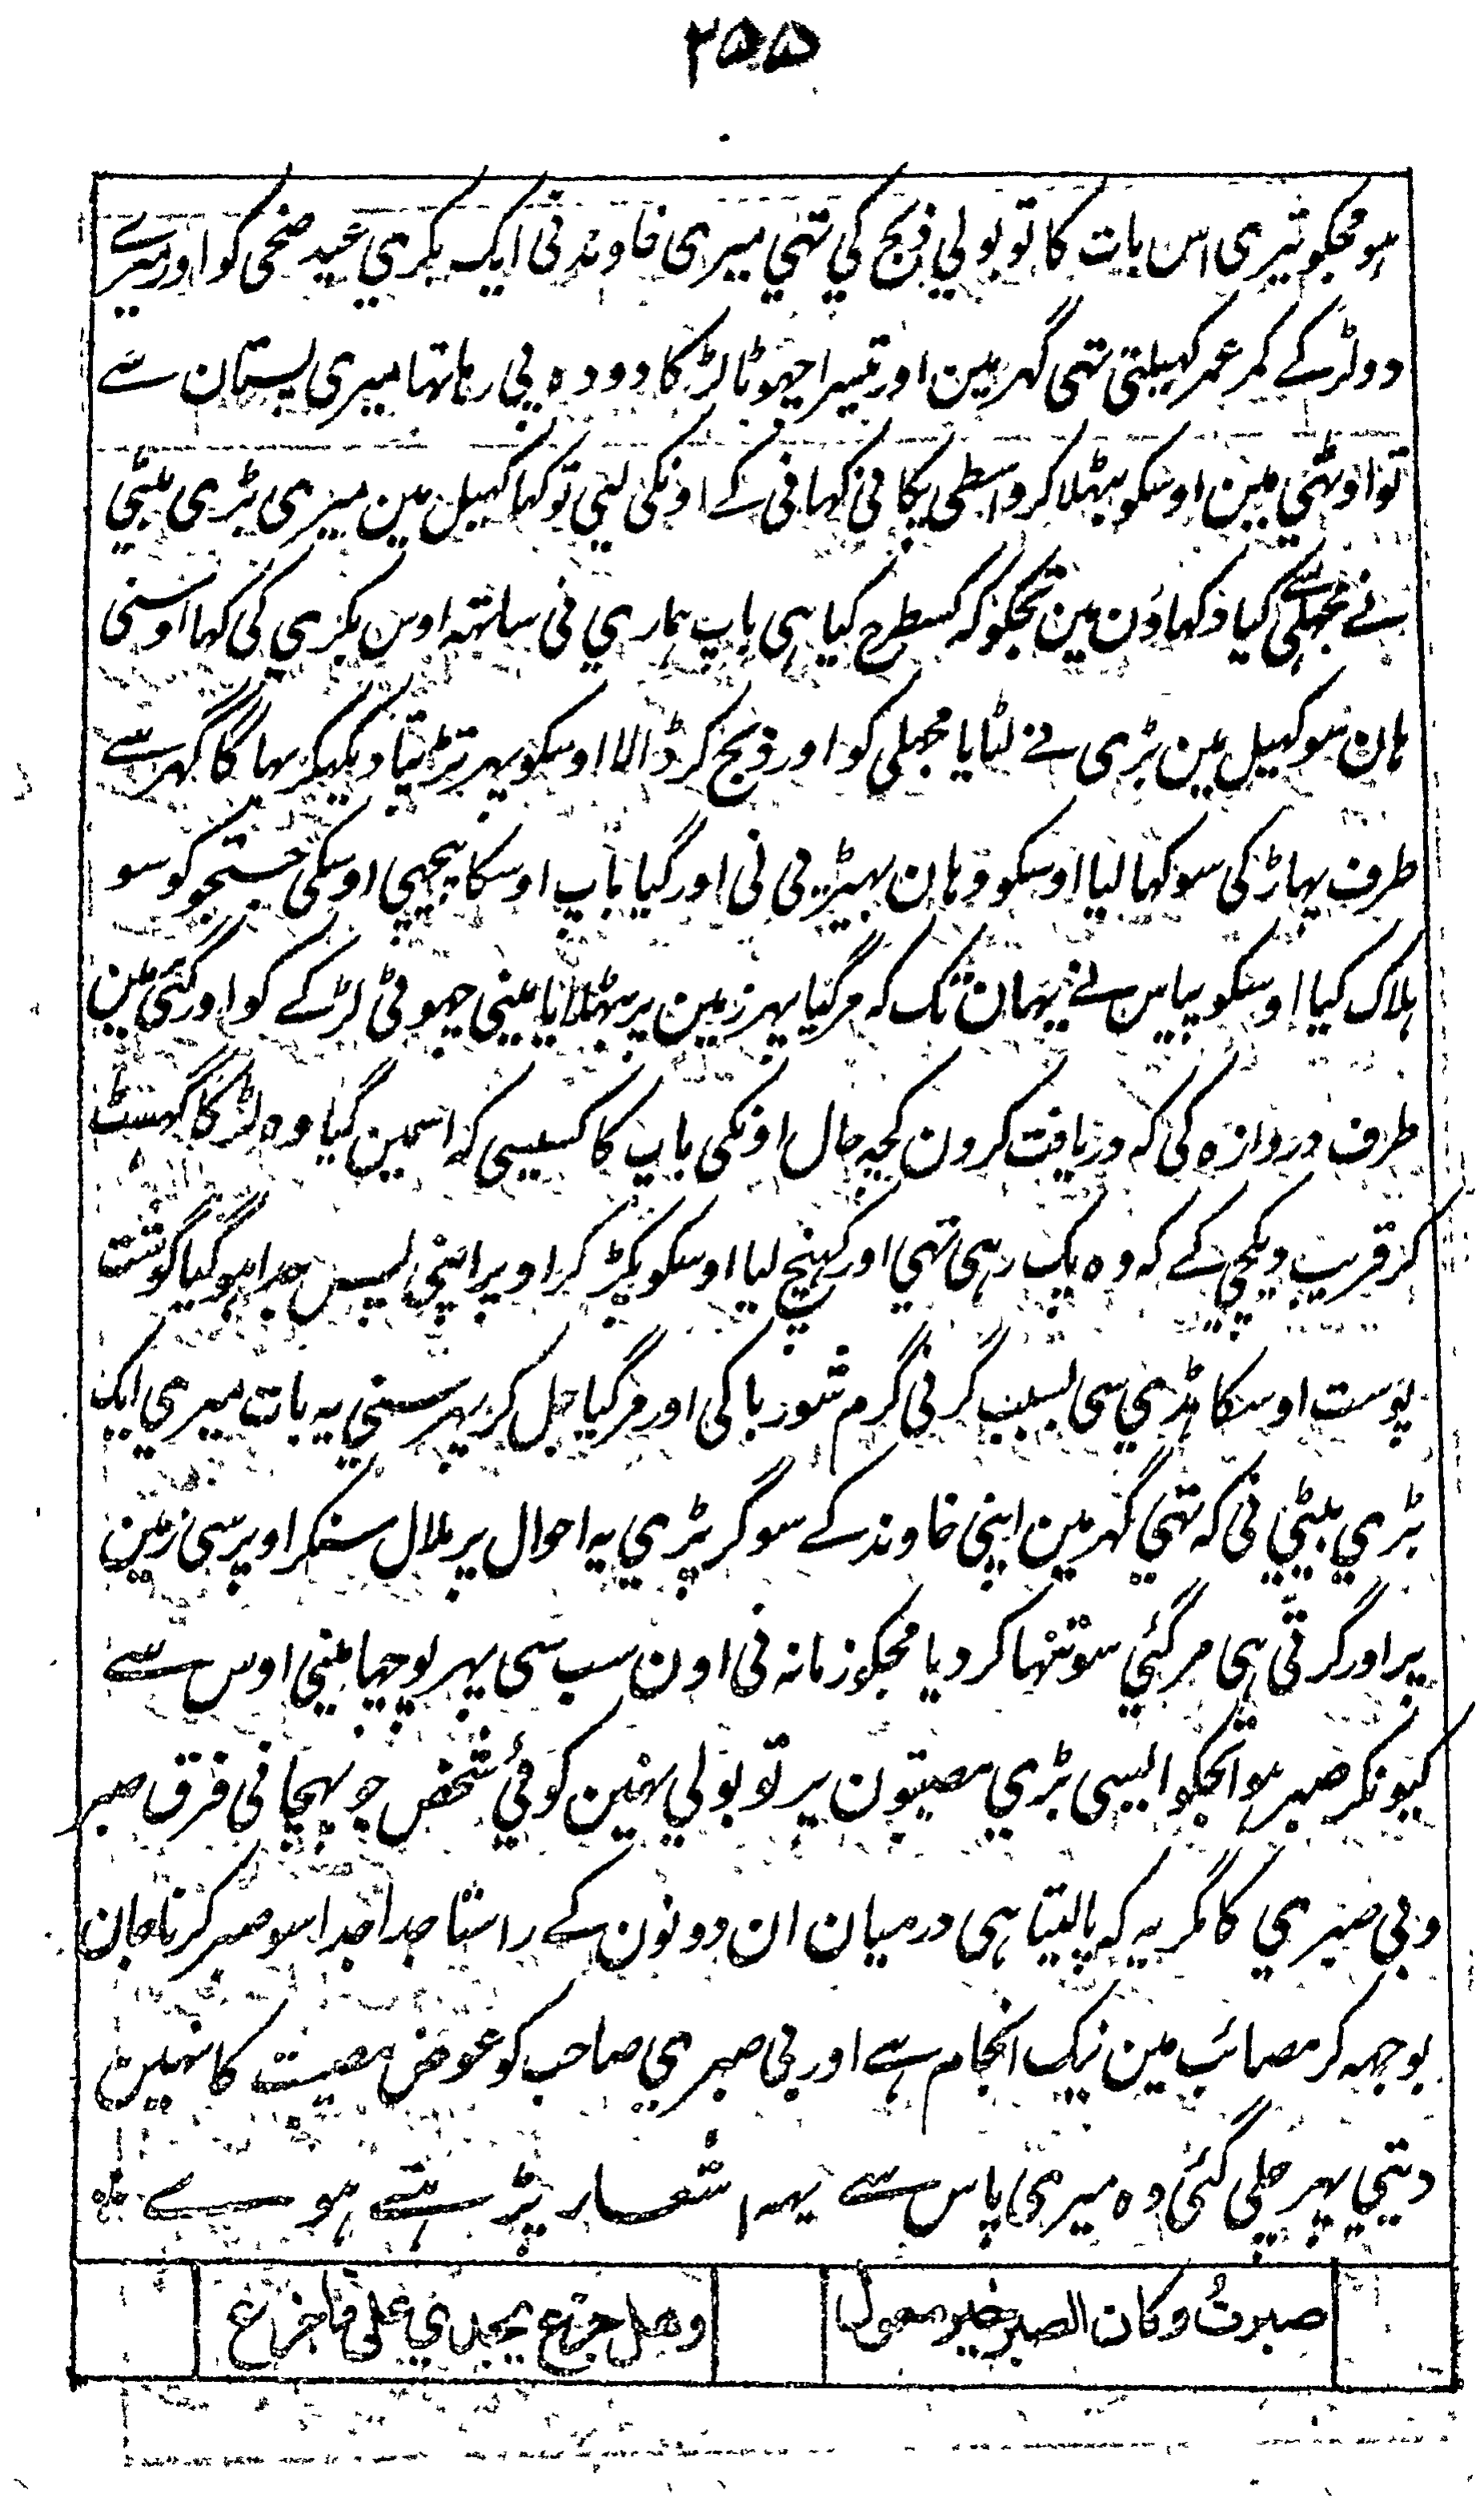 ۲۵۵
ہو مجکو تیری اس بات کا تو بولي ذبح کي تهي میری خاوند نی ایک بکري عید ضحی کو اور میرے
دو لڑکے کم عمر کہیلتی تهی گہر مین اور تیسرا چهوٹا لڑکا دوده پی رہا تہا میری پستان سے
تو اوٹهي مین اوسکو بٹہلا کر واسطی پکانی کہانی کے اونکی لیی تو کہا کہیل مین میری بڑی بیٹي
نے مجہلی سے کیا دکہاؤن مین تجکو کہ کسطرح کیا ہی باپ ہماري نی ساتہہ اوس بکري کی کہا اوسنی
ہان سو کہیل مین بڑی نے لٹایا مجہلی کو اور ذبح کر ڈالا اوسکو پہر تڑپتا دیکہکر بہاگا گہر سے
طرف پہاڑ کی سو کہا لیا اوسکو وہان بہیڑیی نی اور گیا باپ اوسکا پیچہي اوسکی جستجو کو سو
ہلاک کیا اوسکو پیاس نے یہان تک کہ مر گیا پہر زمین پر بٹہلایا مینی چہوٹی لڑکے کو اور گئی مین
طرف دروازه کی کہ دریافت کرون کچہ حال اونکی باپ کا کسیسی کہ اسمین گیا وه لڑکا گہسٹ
کر قریب دیگچي کے کہ وه پک رہی تهي اور کہینچ لیا اوسکو پکڑ کر اوپر اپنی پس جدا ہو گیا گوشت
پوست اوسکا ہڈي سی بسبب گرنی گرم شوربا کی اور مر گیا جل کر پہر سني یہ بات میري ایک
بڑي بیٹي نی کہ تهي گہر مین اپنی خاوند کے سو گر پڑي یہ احوال پر ملال سنکر اوپر سی زمین
پر اور گرتی ہی مر گئي سو تنہا کر دیا مجکو زمانہ نی اون سب سی پہر پوچہا مینی اوس سے
کیونکر صبر ہوا تجکو ایسی بڑي مصیبتون پر تو بولي نہین کوئي شخص جو پہچانی فرق صبر
و بی صبري کا مگر یہ کہ پا لیتا ہی درمیان ان دونون کے راستا جدا جدا سو صبر کرنا جان
بوجہہ کر مصائب مین نیک انجام ہے اور بی صبري صاحب کو عوض مصیبت کا نہین
دیتي پہر چلی گئی وه میری پاس سے یہہ اشعار پڑہتے ہوے
صبرتُ وکان الصبر خیر معول
وهل جزع یجدي علی فاجزع